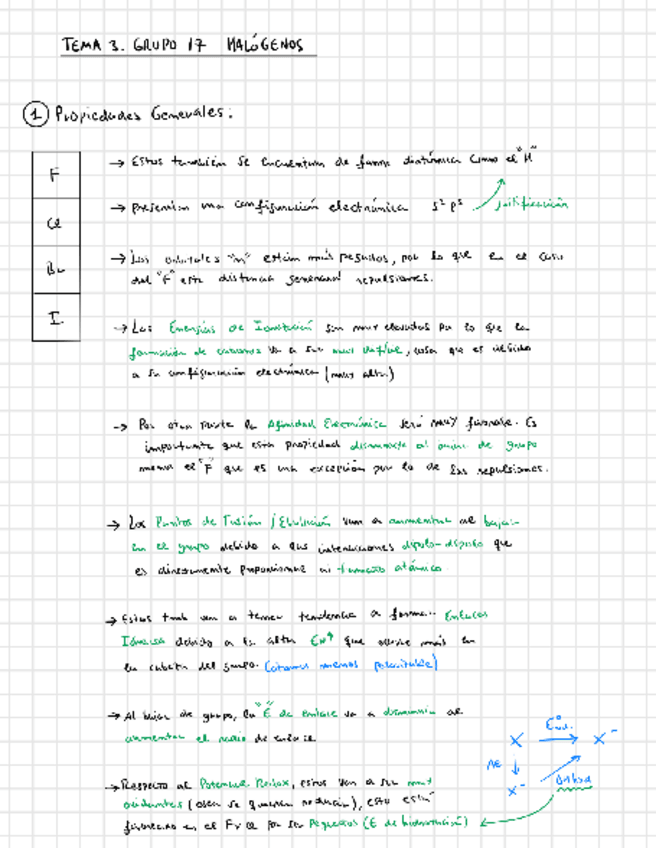 TEMA 3. GRUPO 17 HALÓGENOS
1 Propiedades Generales:
F
Cl
Br
I
→ Estos también se encuentran de forma diatómica como el "H"
→ Presentan una configuración electrónica s² p⁵ justificación
→ Los orbitales "n" están más pegados, por lo que en el caso
del "F" esta distancia generará repulsiones.
→ Las Energías de Ionización son muy elevadas por lo que la
formación de cationes va a ser muy difícil, cosa que es debido
a su configuración electrónica (muy alta)
→ Por otra parte la Afinidad Electrónica será muy favorable. Es
importante que esta propiedad disminuye al bajar de grupo
menos el "F" que es una excepción por lo de las repulsiones.
→ Los Puntos de Fusión / Ebullición van a aumentar al bajar
en el grupo debido a las interacciones dipolo-dipolo que
es directamente proporcional al tamaño atómico
→ Estos tamb van a tener tendencia a formar Enlaces
Iónicos debido a la alta EN que existe más en
la cabeza del grupo (átomos menos polarizable)
→ Al bajar de grupo, la "E de enlace va a disminuir al
aumentar el radio de enlace
X → X⁻
AE ↓
X⁻
→ Respecto al Potencial Redox, estos van a ser muy
oxidantes (osea se quieren reducir), esto está
favorecido en el F y Cl por ser Pequeños (E de hidratación)